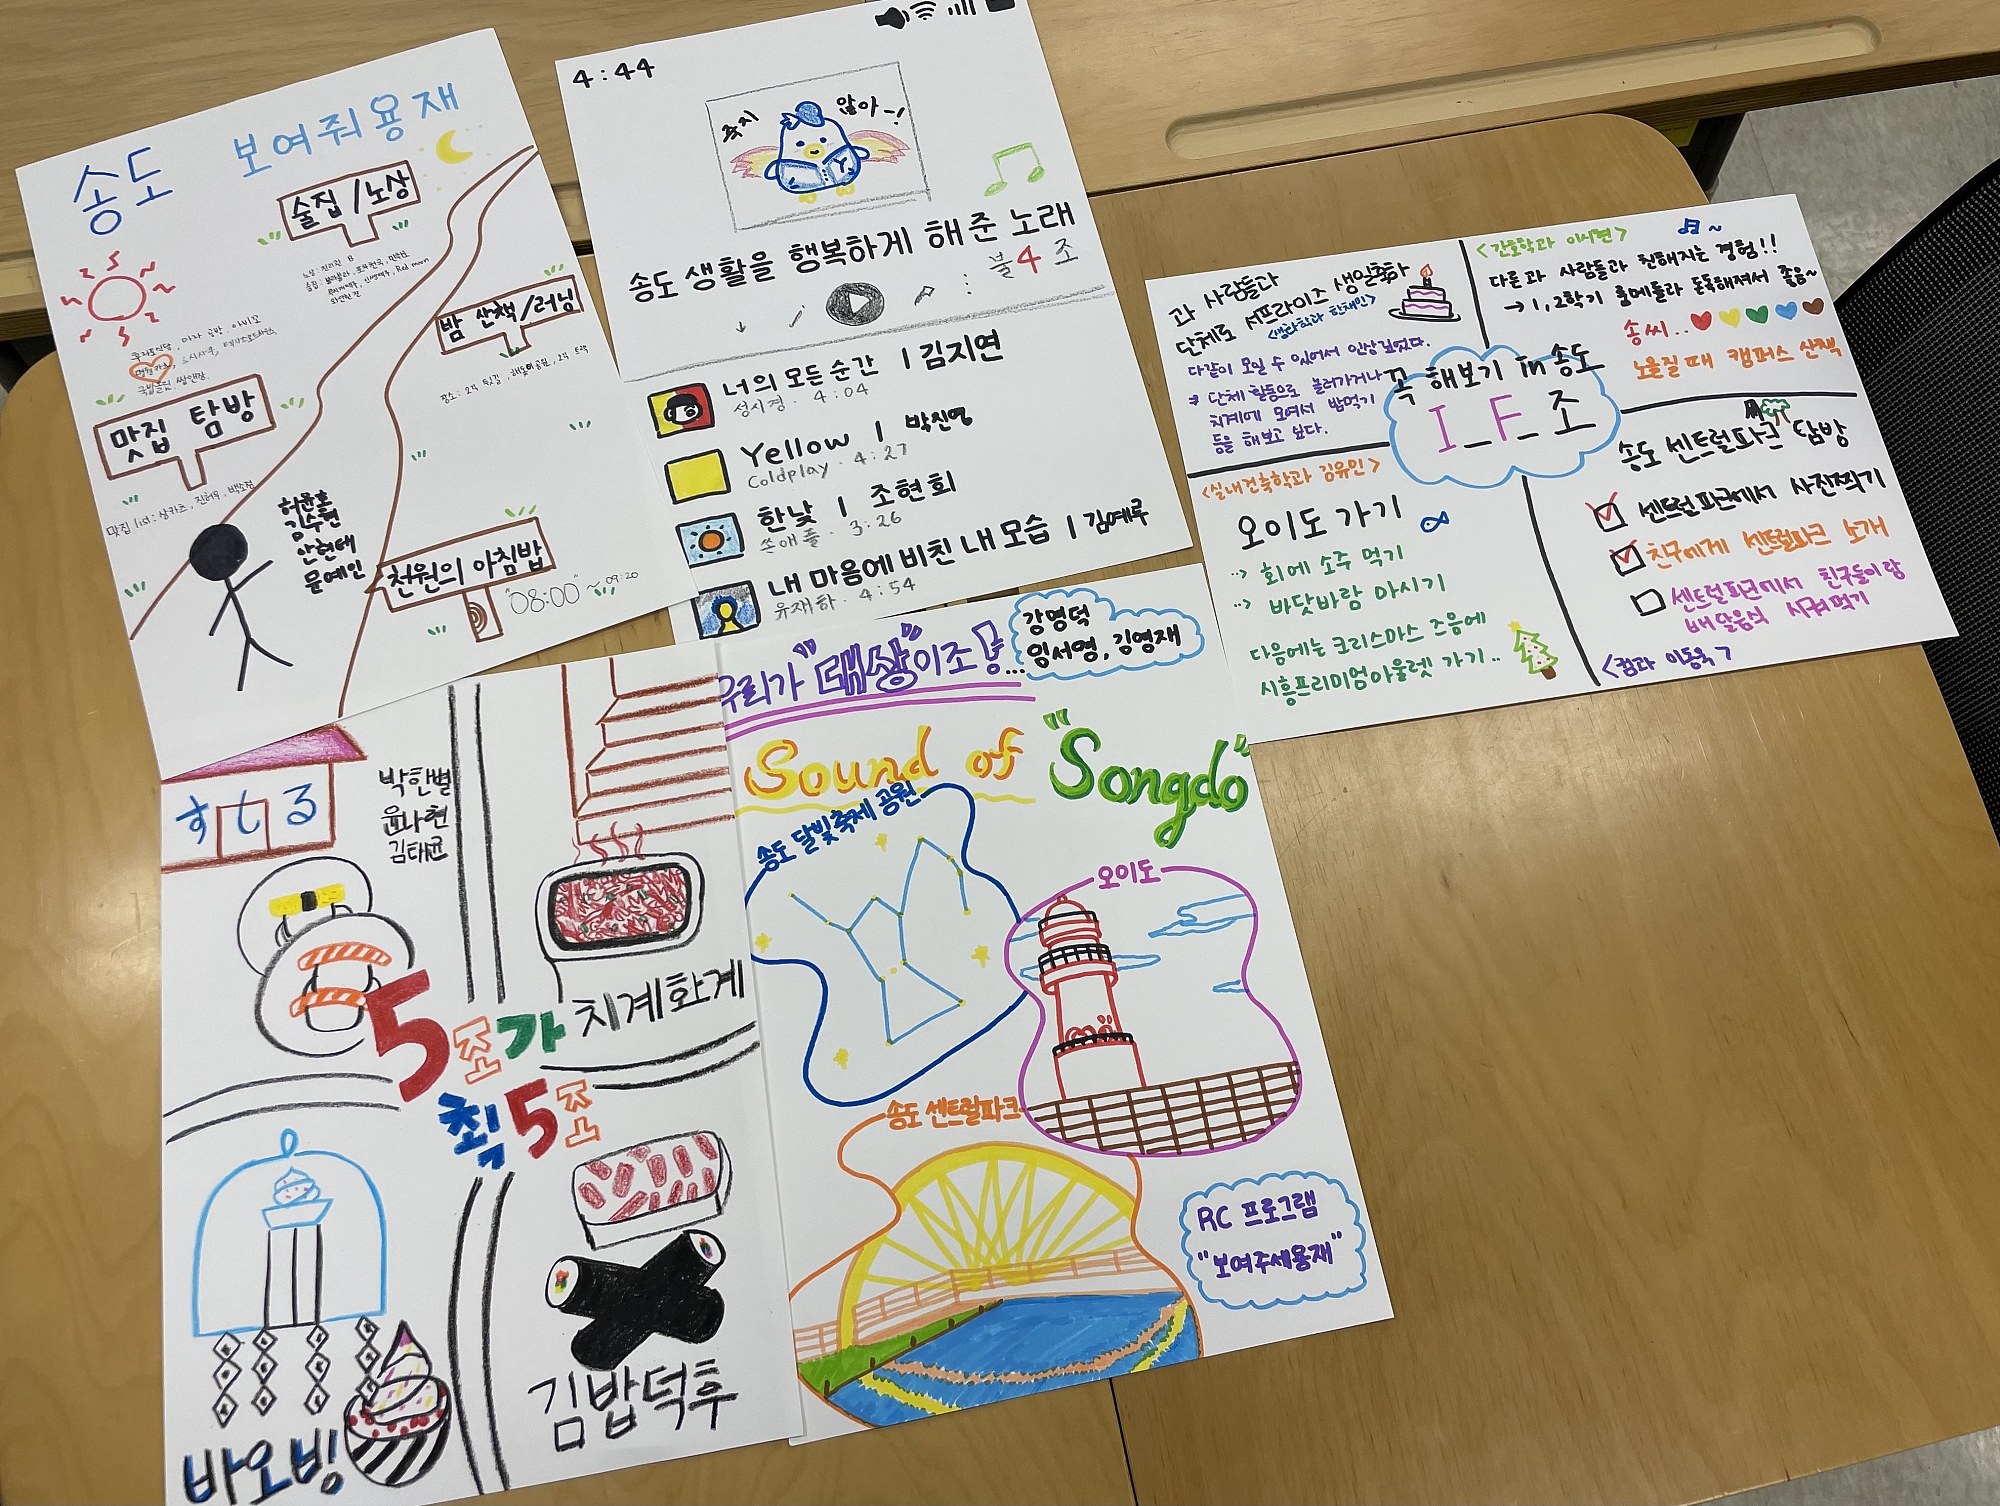 송도 보여줘용재
술집/노상
밤 산책/러닝
맛집 탐방
허윤호
김수현
안현태
문예인
천원의 아침밥
"08:00"~09:20
4:44
죽지 않아~!
송도 생활을 행복하게 해준 노래
불4조
너의 모든 순간 | 김지연
성시경 · 4:04
Yellow | 박진영
Coldplay · 4:27
한낮 | 조현회
쏜애플 · 3:26
내 마음에 비친 내 모습 | 김예루
유재하 · 4:54
과 사람들과
단체로 서프라이즈 생일축하
다같이 모일 수 있어서 인상깊었다.
* 단체 활동으로 놀러가거나
치계에 모여서 밥먹기
등을 해보고 싶다.
<간호학과 이시현>
다른과 사람들과 친해지는 경험!!
→ 1,2학기 룸메들과 돈독해져서 좋음~
송씨..
노을질 때 캠퍼스 산책
꼭 해보기 in 송도
I_F_조
<실내건축학과 김유인>
오이도 가기
회에 소주 먹기
바닷바람 마시기
다음에는 크리스마스 즈음에
시흥프리미엄아울렛 가기..
송도 센트럴파크 탐방
센트럴파크에서 사진찍기
친구에게 센트럴파크 소개
센트럴파크에서 친구들이랑
배달음식 시켜먹기
<컴과 이동욱>
すしる
박한별
윤나현
김태균
치계화계
5조가
최5조
바오빙
김밥덕후
우리가 "대상"이조
강명덕
임서영, 김영재
Sound of "Songdo"
송도 달빛축제 공원
오이도
송도 센트럴파크
RC 프로그램
"보여주세용재"